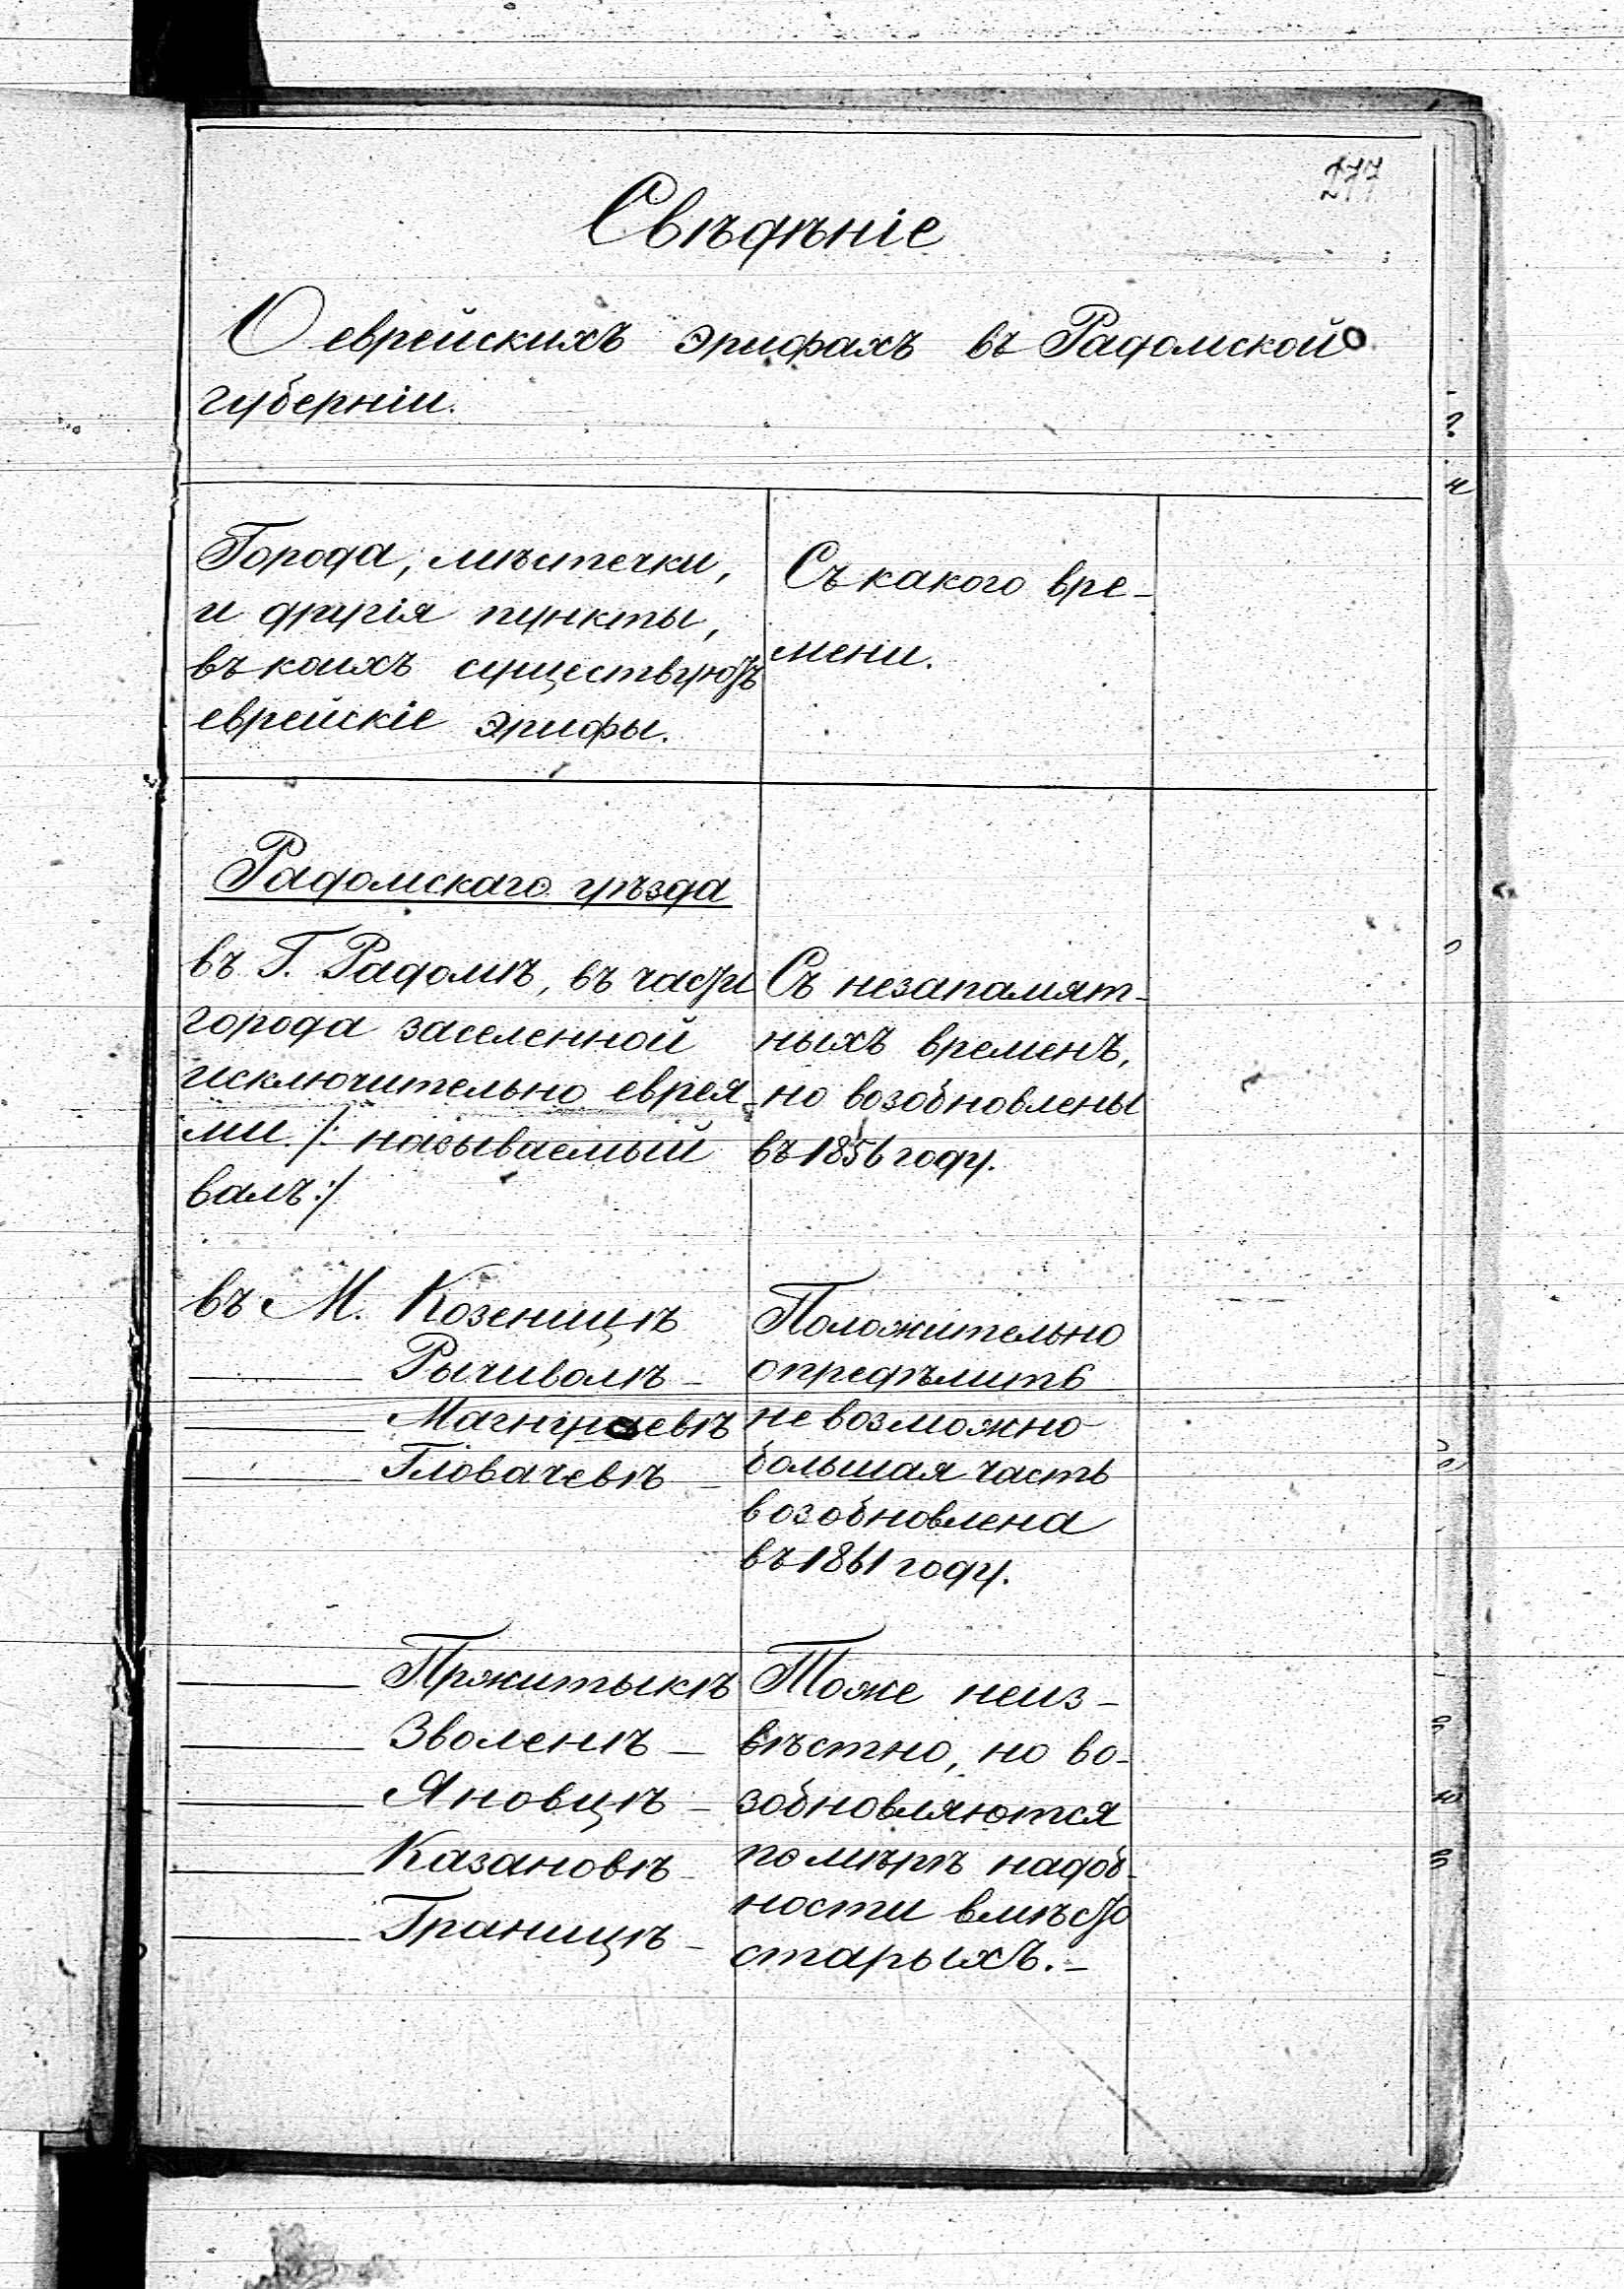 277
Свѣдѣніе
О еврейскихъ эрифахъ въ Радомской
губерніи.
Города, мѣстечки,
и другія пункты,
въ коихъ существуютъ
еврейскіе эрифы.
Съ какого вре-
мени.
Радомскаго уѣзда
въ Г. Радомѣ, въ части
города заселенной
исключительно еврея-
ми /: называемый
валъ :/
Съ незапамят-
ныхъ временъ,
но возобновлены
въ 1856 году.
въ М. Козеницѣ
Рычиволѣ –
Магнушевѣ
Гловачевѣ –
Положительно
опредѣлить
не возможно
большая часть
возобновлена
въ 1861 году.
Пржитыкѣ
Зволенѣ –
Яновцѣ –
Казановѣ –
Границѣ –
Тоже неиз-
вѣстно, но во-
зобновляются
по мѣрѣ надоб-
ности вмѣсто
старыхъ. –